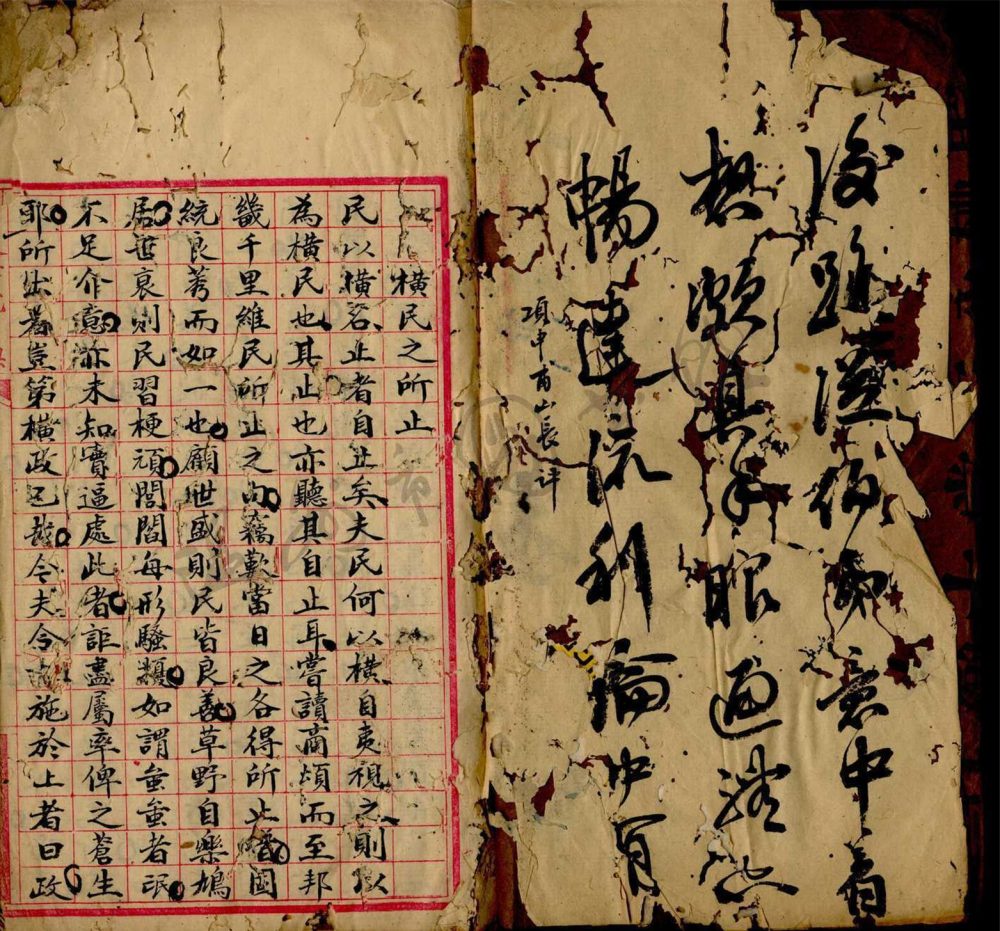 後路從傍面意中着
想頗具手眼通隨恣
暢達流利論中肯
項申甫山長評
橫民之所止
民以橫名止者自止矣夫民何以橫自夷視之則以
為橫民也其止也亦聽其自止耳嘗讀商頌而至邦
畿千里維民所止之句竊歎當日之各得所止暗國
統良莠而如一也顧世盛則民皆良善草野自樂鳩
居世衰則民習梗頑閭閻每形騷類如謂蚩蚩者氓
不足介意亦未知實逼處此者詎盡屬率俾之蒼生
耶所出焉豈第橫政已哉今夫令施於上者曰政